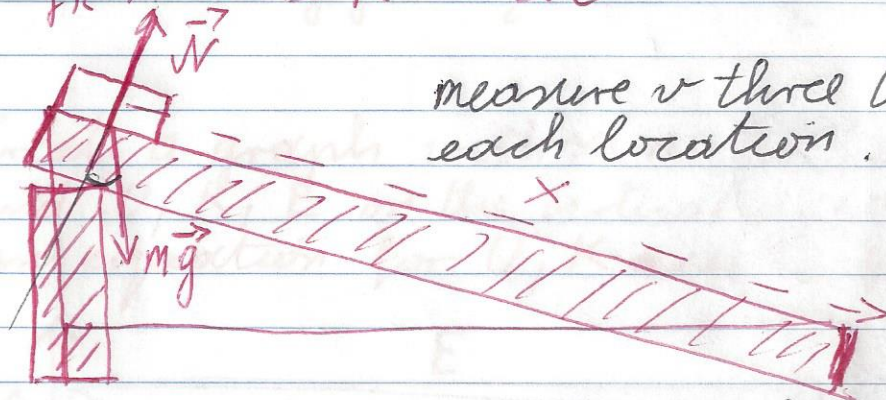 N
measure v three
each location.
x
mg